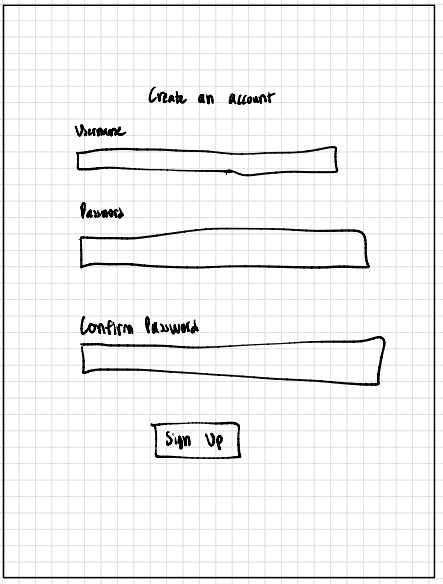 Create an account
Username
Password
Confirm Password
Sign Up